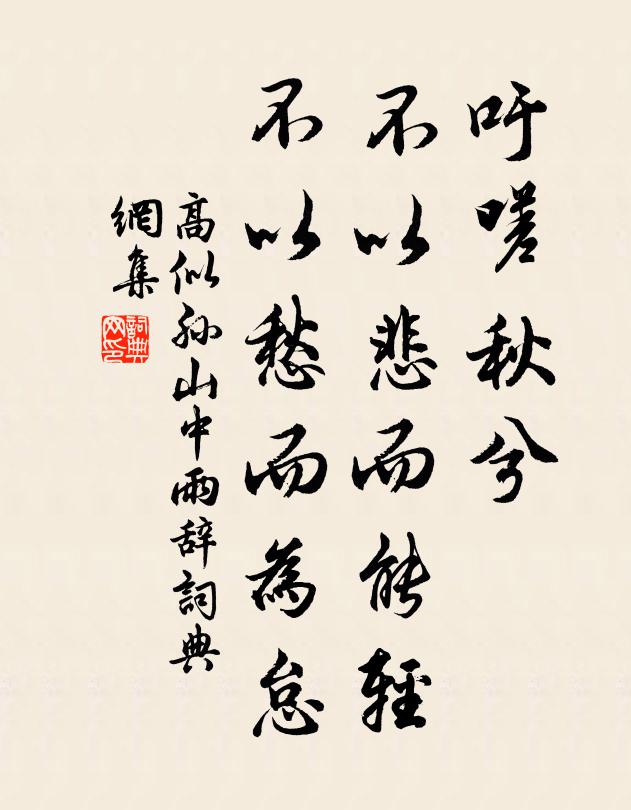 吁嗟秋兮
不以悲而能輕
不以愁而為怠
高似孫山中雨辞詞典
網集
詞典
网印